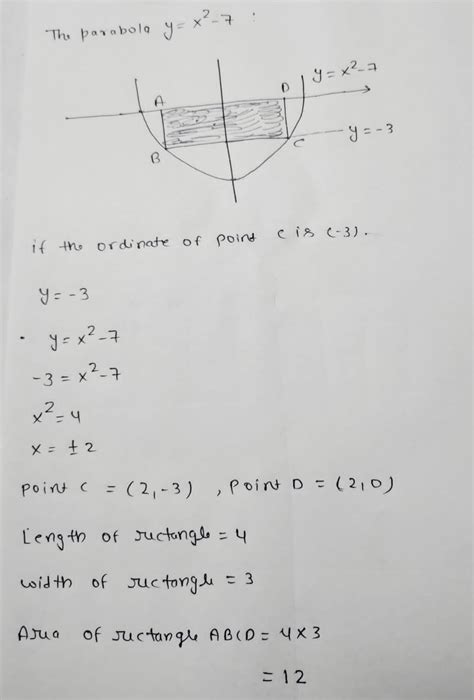 The parabola y = x²-7 :
y = x²-7
A
D
y = -3
B
C
if the ordinate of point C is (-3).
y = -3
• y = x²-7
-3 = x²-7
x² = 4
x = ± 2
point C = (2,-3) , Point D = (2,0)
Length of rectangle = 4
width of rectangle = 3
Area of rectangle ABCD = 4×3
= 12